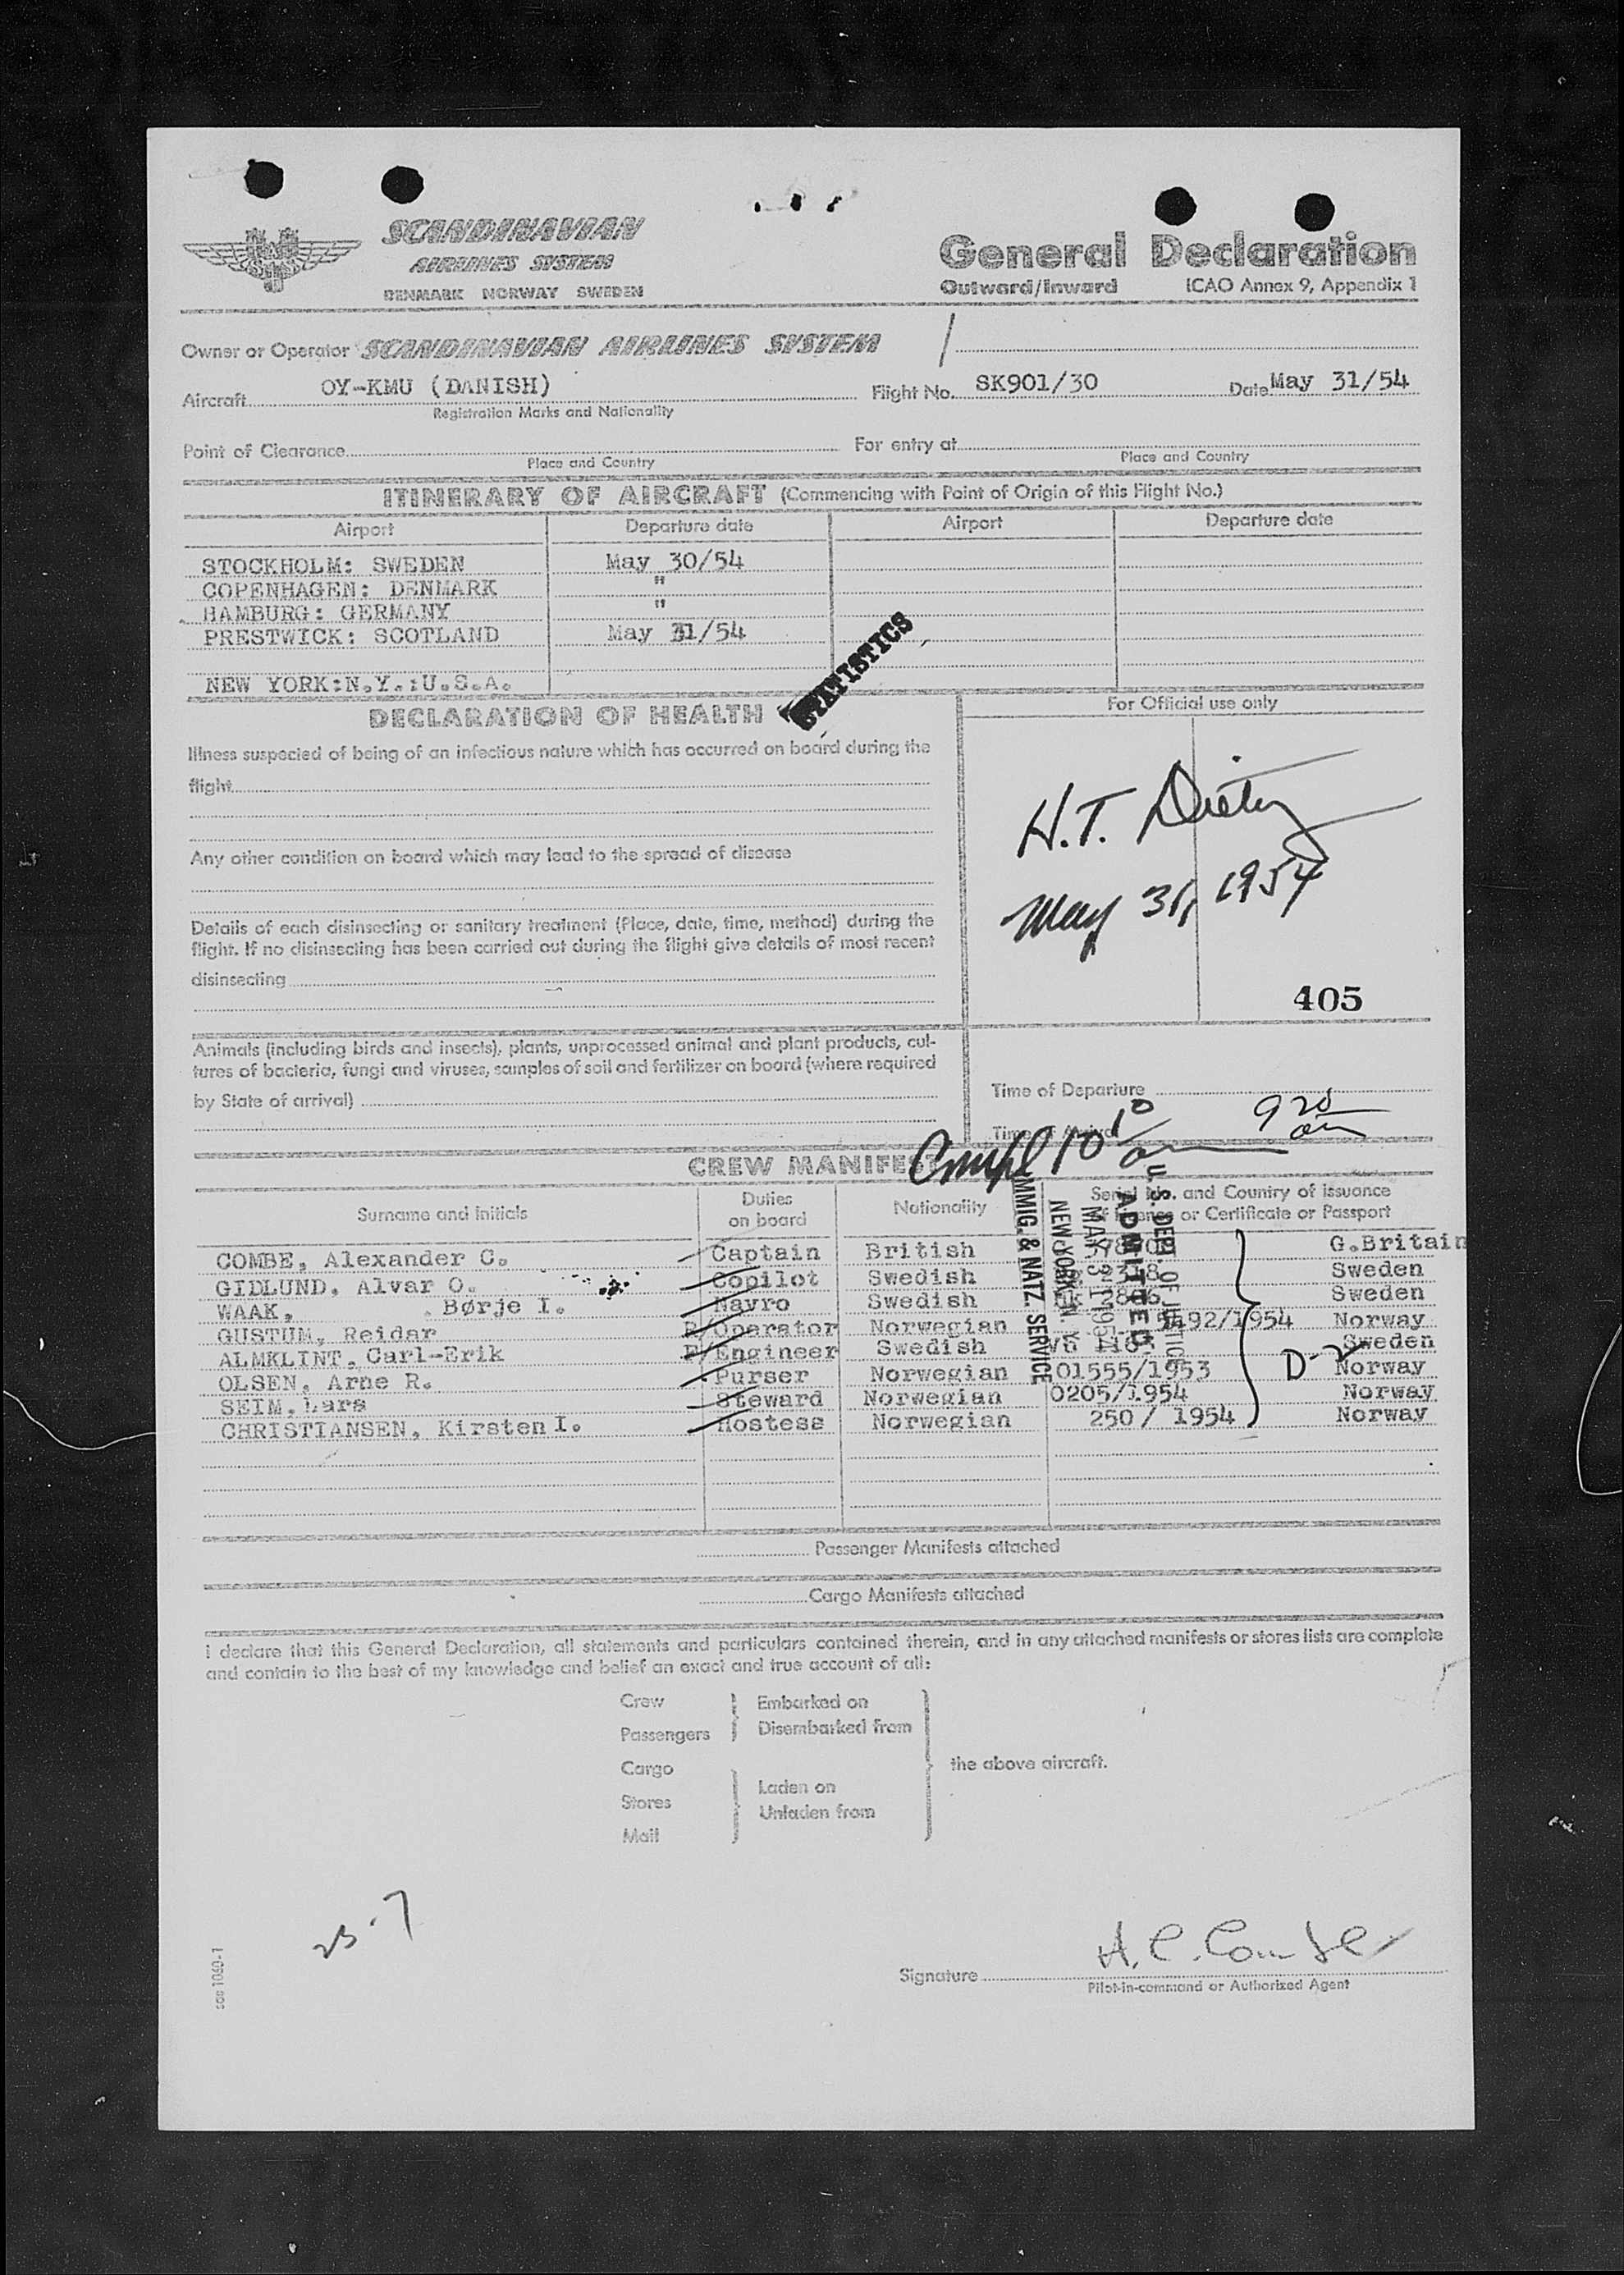 SCANDINAVIAN
AIRLINES SYSTEM
DENMARK NORWAY SWEDEN
General Declaration
Outward/Inward ICAO Annex 9, Appendix 1
Owner or Operator SCANDINAVIAN AIRLINES SYSTEM
Aircraft OY-KMU (DANISH) Flight No. SK901/30 Date May 31/54
Registration Marks and Nationality
Point of Clearance For entry at
Place and Country Place and Country
ITINERARY OF AIRCRAFT (Commencing with Point of Origin of this Flight No.)
Airport Departure date Airport Departure date
STOCKHOLM: SWEDEN May 30/54
COPENHAGEN: DENMARK "
HAMBURG: GERMANY "
PRESTWICK: SCOTLAND May 31/54
NEW YORK:N.Y.:U.S.A.
STATISTICS
DECLARATION OF HEALTH
For Official use only
Illness suspected of being of an infectious nature which has occurred on board during the
flight
Any other condition on board which may lead to the spread of disease
Details of each disinsecting or sanitary treatment (Place, date, time, method) during the
flight. If no disinsecting has been carried out during the flight give details of most recent
disinsecting
H.T.
May 31, 1954
405
Animals (including birds and insects), plants, unprocessed animal and plant products, cul-
tures of bacteria, fungi and viruses, samples of soil and fertilizer on board (where required
by State of arrival)
Time of Departure
Time of Arrival 9 20 am
10 10 am
CREW MANIFEST
Surname and Initials Duties on board Nationality Serial No. and Country of issuance
of licence or Certificate or Passport
COMBE, Alexander C. Captain British G.Britain
GIDLUND, Alvar O. Copilot Swedish 2318 Sweden
WAAK, Børje I. Navro Swedish Sweden
GUSTUM, Reidar R/Operator Norwegian 5492/1954 Norway
ALMKLINT, Carl-Erik F/Engineer Swedish Sweden
OLSEN, Arne R. Purser Norwegian 01555/1953 Norway
SEIM, Lars Steward Norwegian 0205/1954 Norway
CHRISTIANSEN, Kirsten I. Hostess Norwegian 250 / 1954 Norway
D-2
U.S. DEPT. OF JUSTICE
ADMITTED
MAY 31 1954
NEW YORK, N. Y.
IMMIG. & NATZ. SERVICE
Passenger Manifests attached
Cargo Manifests attached
I declare that this General Declaration, all statements and particulars contained therein, and in any attached manifests or stores lists are complete
and contain to the best of my knowledge and belief an exact and true account of all:
Crew Embarked on
Passengers Disembarked from
Cargo the above aircraft.
Laden on
Stores
Unladen from
Mail
23-7
sas 1060-1
Signature A.C. Combe
Pilot-in-command or Authorized Agent